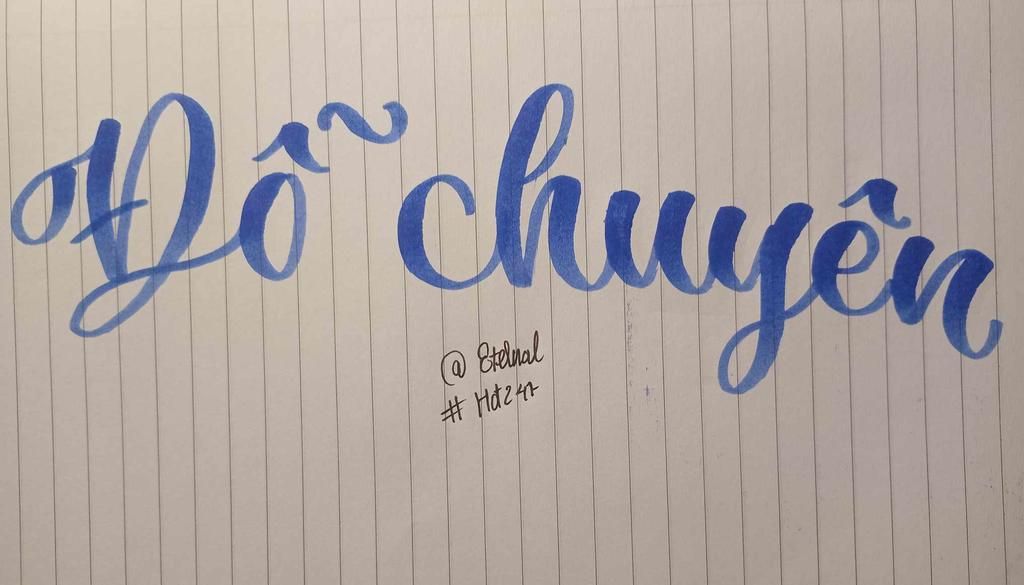 Đỗ chuyên
@ Eternal
# Hdt247